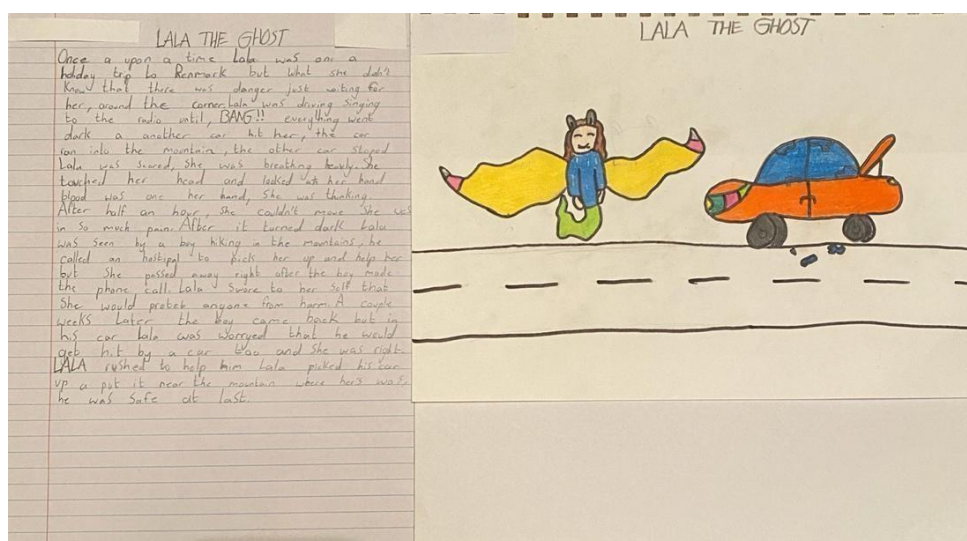 LALA THE GHOST
Once a upon a time Lala was one a
holiday trip to Renmark but what she didn't
know that there was danger just waiting for
her, around the corner. Lala was driving singing
to the radio until, BANG!! everything went
dark a another car hit her, the car
ran into the mountain, the other car stoped
Lala was scared, She was breathing heavly. She
touched her head and looked at her hand
blood was one her hand, She was thinking.
After half an hour, She couldn't move She was
in so much pain. After it turned dark Lala
was seen by a boy hiking in the mountains, he
called an hostipal to pick her up and help her
but She passed away right after the boy made
the phone call. Lala Swore to her self that
She would protek anyone from harm. A couple
weeks later the boy came back but in
his car Lala was worryed that he would
get hit by a car too and She was right.
LALA rushed to help him Lala picked his car
up a put it near the mountain where hers was,
he was safe at last.
LALA THE GHOST